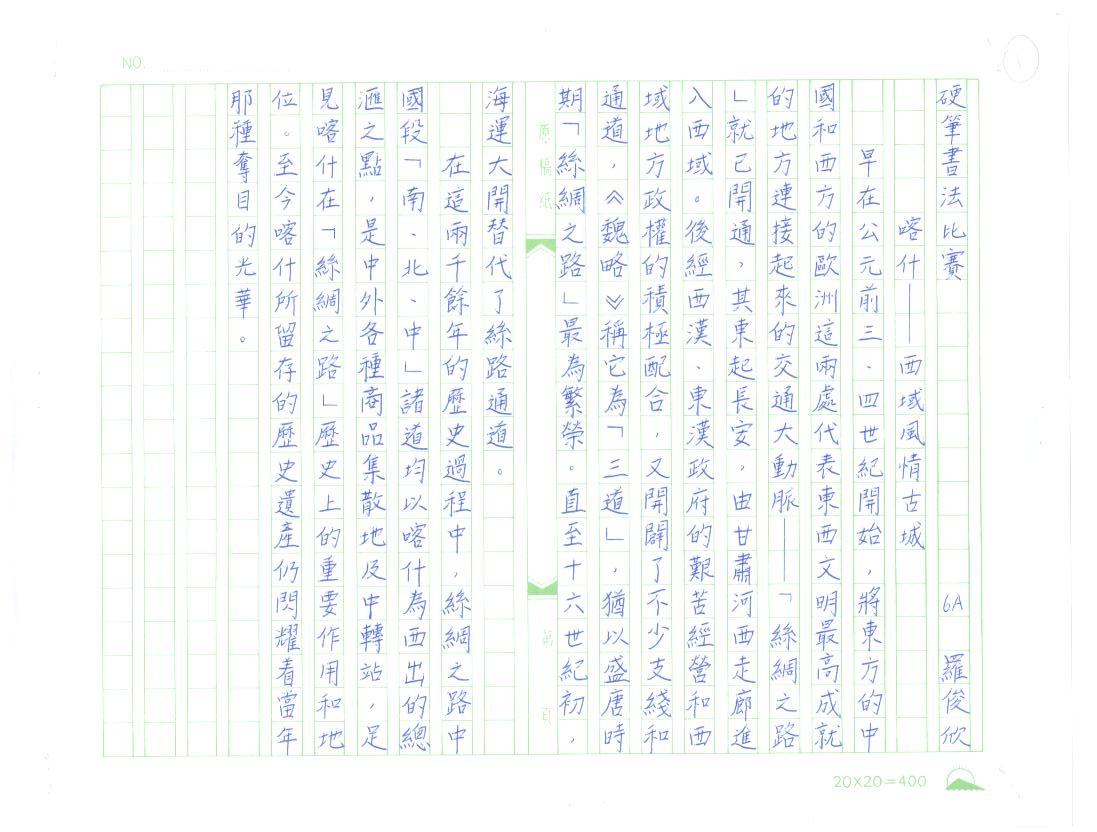 NO.
1
硬筆書法比賽 6A 羅俊欣
喀什——西域風情古城
早在公元前三、四世紀開始，將東方的中
國和西方的歐洲這兩處代表東西文明最高成就
的地方連接起來的交通大動脈——「絲綢之路
」就已開通，其東起長安，由甘肅河西走廊進
入西域。後經西漢、東漢政府的艱苦經營和西
域地方政權的積極配合，又開闢了不少支綫和
通道，《魏略》稱它為「三道」，猶以盛唐時
期「絲綢之路」最為繁榮。直至十六世紀初，
原稿紙
第 頁
海運大開替代了絲路通道。
在這兩千餘年的歷史過程中，絲綢之路中
國段「南、北、中」諸道均以喀什為西出的總
滙之點，是中外各種商品集散地及中轉站，足
見喀什在「絲綢之路」歷史上的重要作用和地
位。至今喀什所留存的歷史遺產仍閃耀着當年
那種奪目的光華。
20X20=400